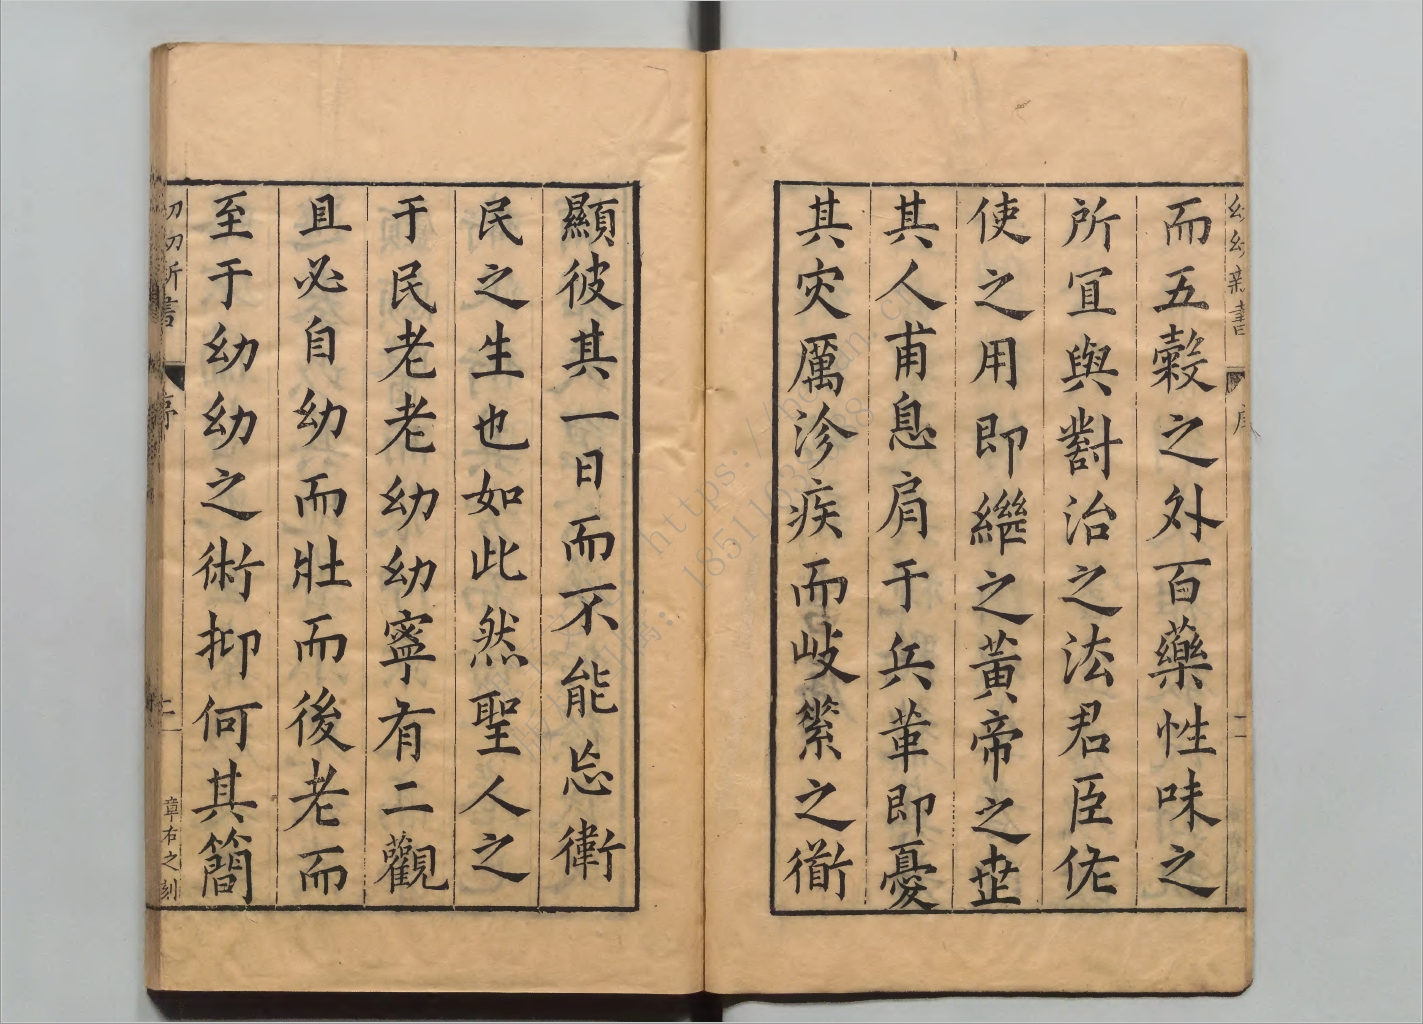 而五穀之外百藥性味之
所宜與對治之法君臣佐
使之用即繼之黃帝之世
其人甫息肩于兵革即憂
其灾厲沴疾而岐黎之衜
顯彼其一日而不能忘衛
民之生也如此然聖人之
于民老老幼幼寧有二觀
且必自幼而壯而後老而
至于幼幼之術抑何其簡
幼幼新書
序
二
幼幼新書
序
二
章右之刻